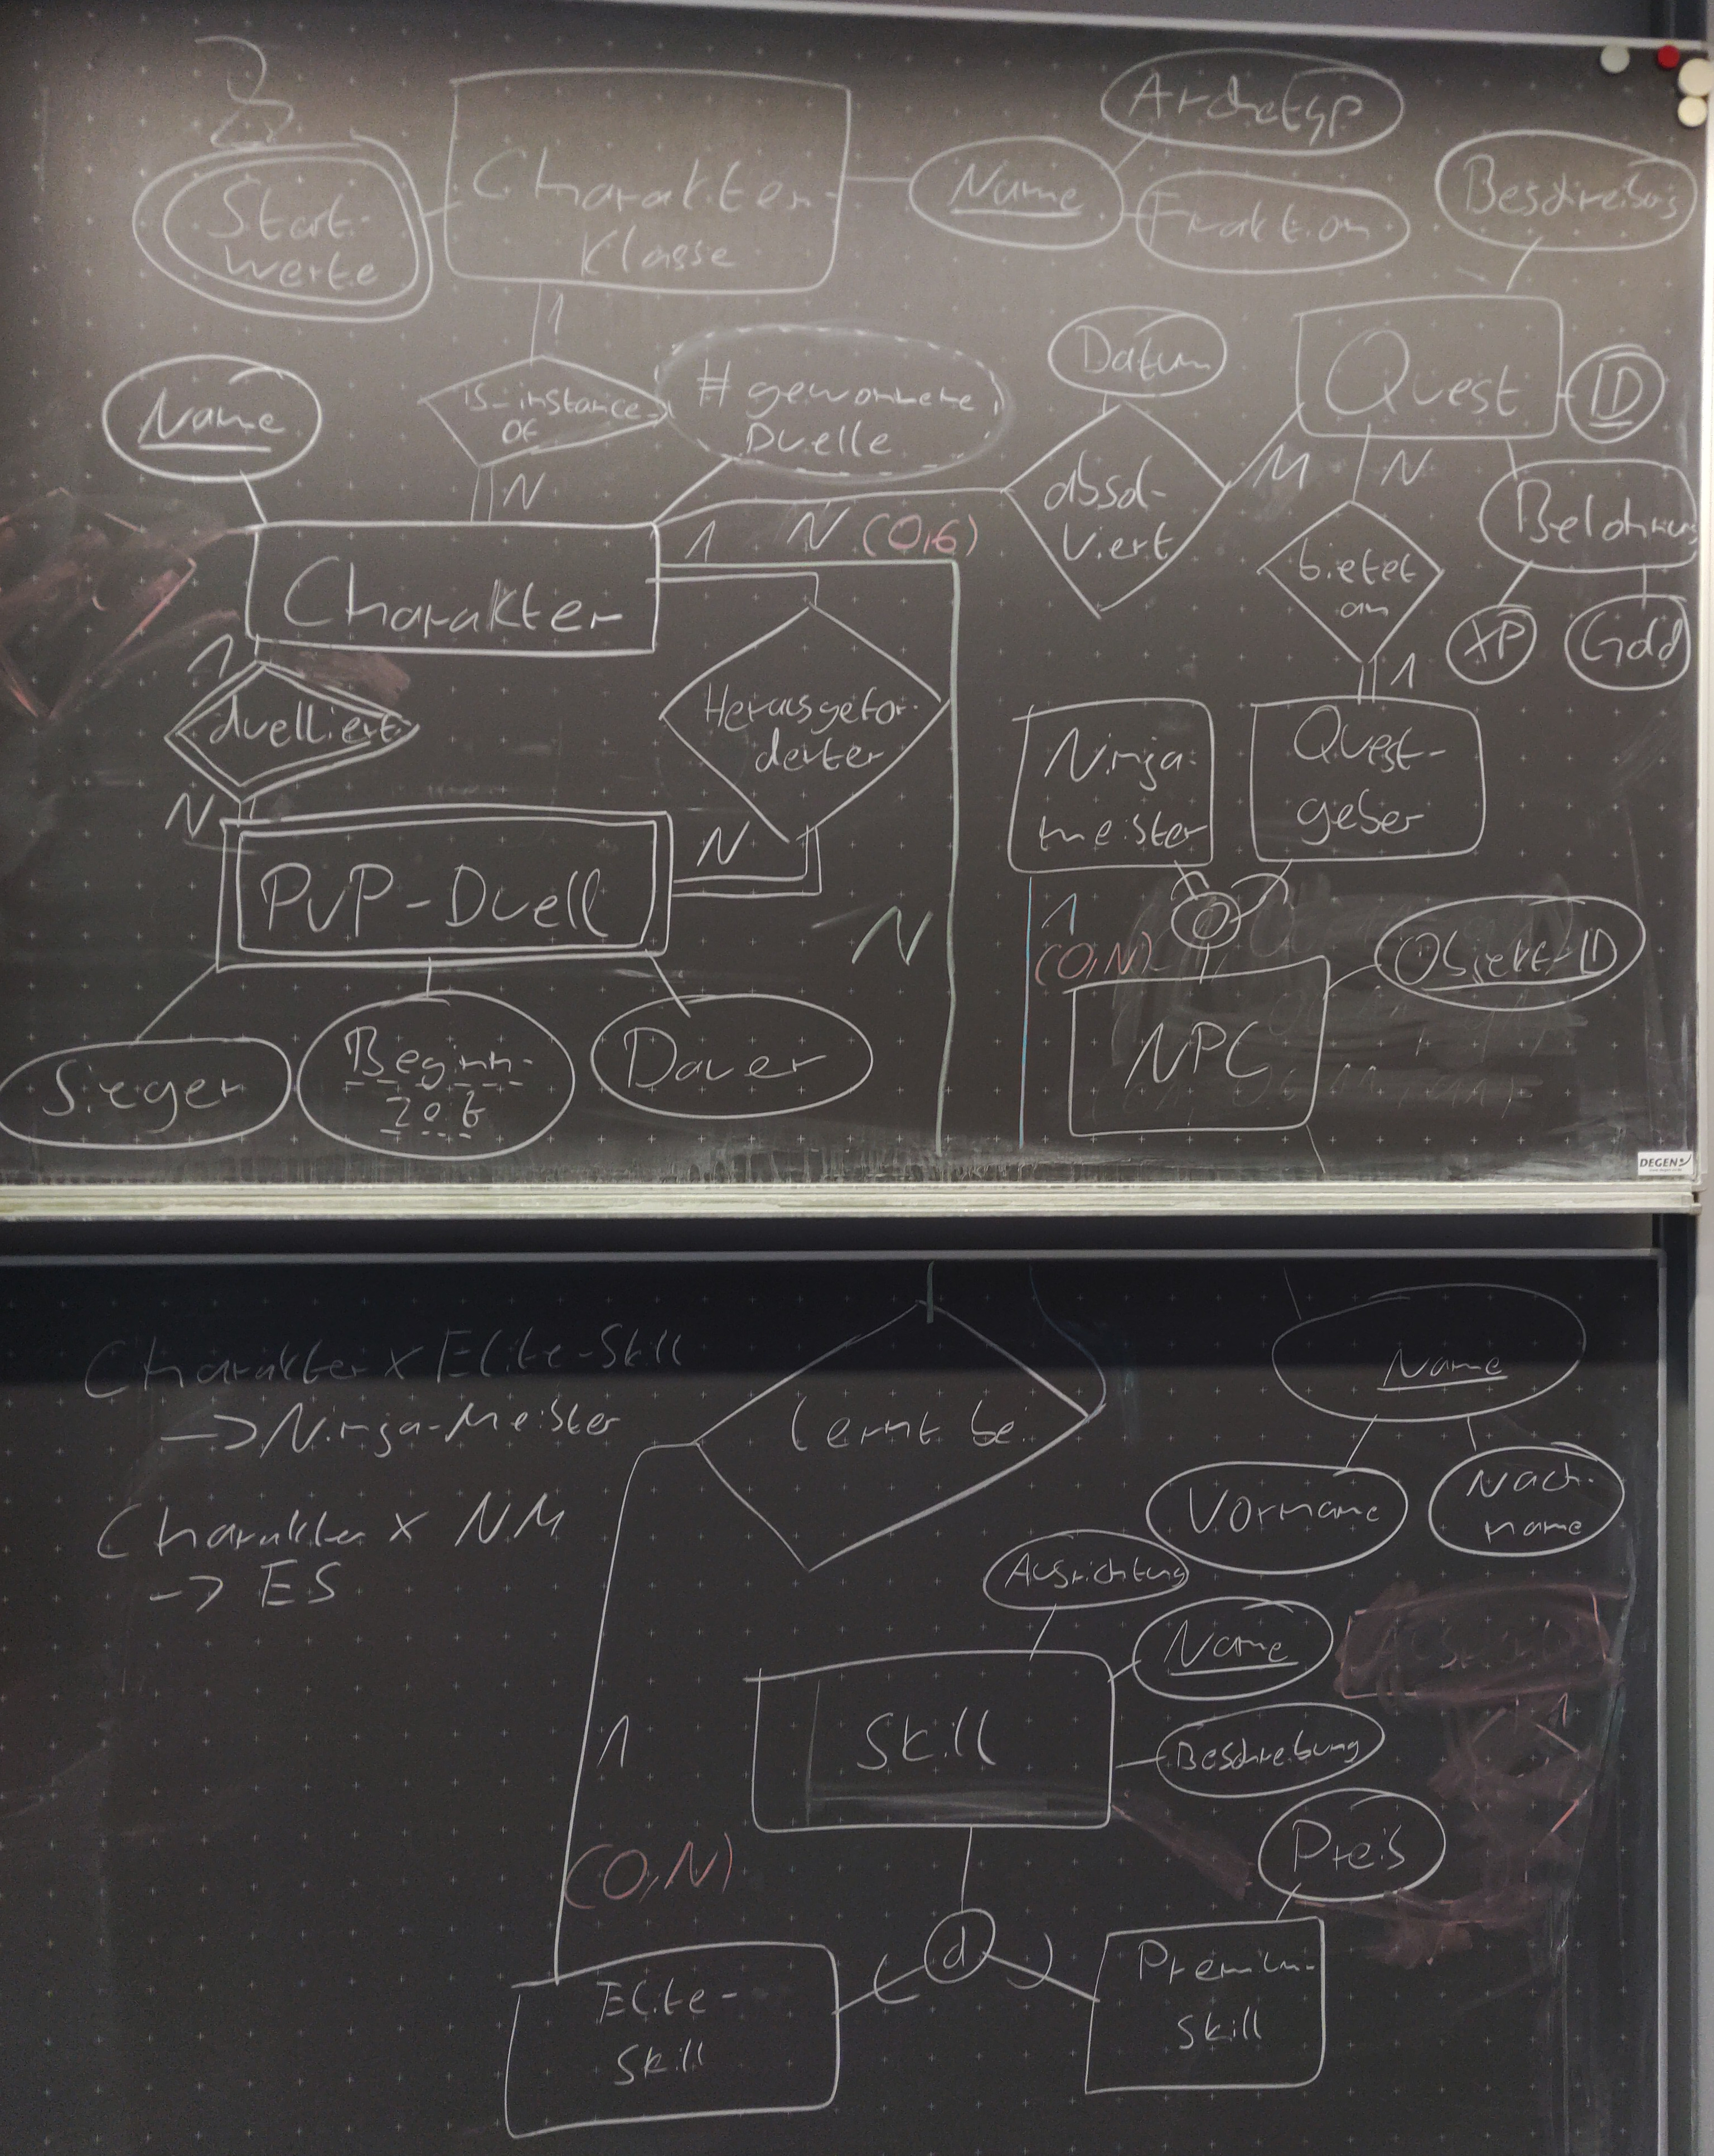 Archetyp
Start-
werte
Charakter-
Klasse
Name
Fraktion
Beschreibung
1
Name
is_instance_
of
# gewonnene
Duelle
Datum
Quest
ID
N
absol-
viert
M
N
Belohnung
1 N (0,6)
Charakter
bietet
an
XP
Gold
1
1
duelliert
Herausgefor-
derter
Ninja-
meister
Quest-
geber
N
N
PvP-Duell
N
1
(0,N)
o
Objekt-ID
NPC
Sieger
Beginn-
Zeit
Dauer
DEGEN
Charakter x Elite-Skill
-> Ninja-Meister
lernt bei
Name
Charakter x NM
-> ES
Vorname
Nach-
name
Ausrichtung
Name
1
Skill
Beschreibung
(0,N)
Preis
d
Elite-
Skill
Premium-
Skill